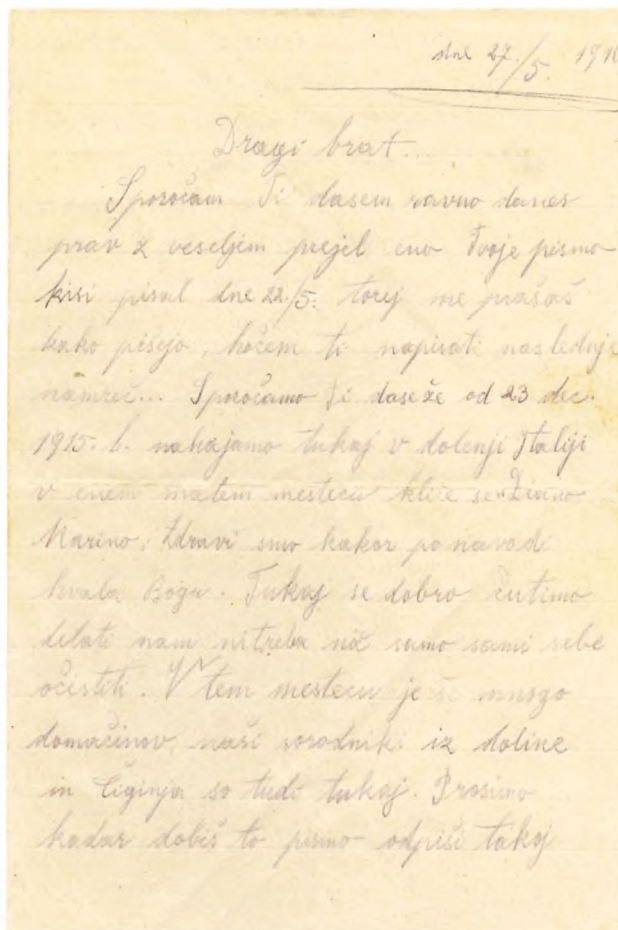 dne 27./5. 191
Dragi brat...
Sporočam Ti dasem ravno danes
prav z veseljem prejel eno Tvoje pismo
kisi pisal dne 22./5. torej me prašaš
kako pišejo, hočem ti napisati naslednje
namreč... Sporočamo Ti daseže od 23 dec.
1915. l. nahajamo tukaj v dolenji Italiji
v enem malem mestecu kliče se Diano
Marino. Zdravi smo kakor po navadi
hvala Bogu. Tukaj se dobro čutimo
delati nam nitreba nič samo sami sebe
očistiti. V tem mestecu je še mnogo
domačinov, naši sorodniki iz doline
in Čiginja so tudi tukaj. Prosimo
kadar dobiš to pismo odpiši takoj